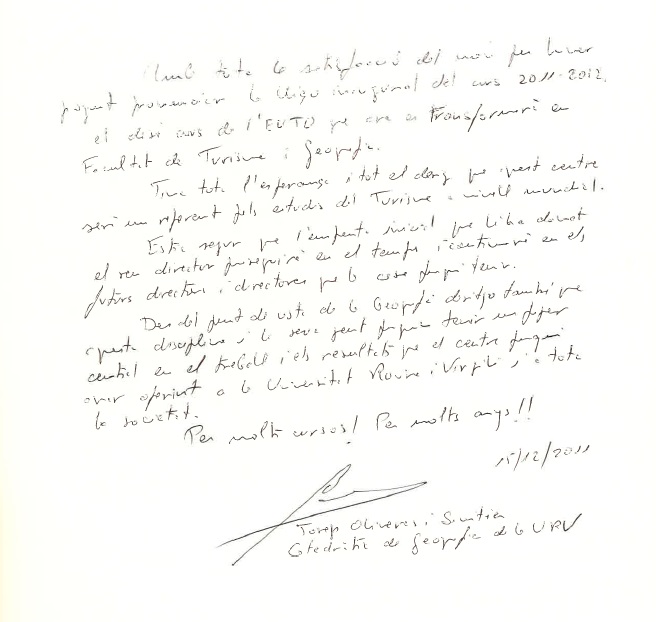 Amb tota la satisfacció del món per haver
pogut presenciar la lliçó inaugural del curs 2011-2012,
el darrer curs de l'EUTO que ara es transformarà en
Facultat de Turisme i Geografia.
Tinc tota l'esperança i tot el desig que aquest centre
serà un referent pels estudis del Turisme a nivell mundial.
Estic segur que l'empenta inicial que li ha donat
el seu director prosseguirà en el temps i continuarà en els
futurs directors i directores que la casa pugui tenir.
Des del punt de vista de la Geografia desitjo també que
aquesta disciplina i la seva gent puguin tenir un paper
central en el treball i els resultats que el centre pugui
anar oferint a la Universitat Rovira i Virgili i a tota
la societat.
Per molts cursos! Per molts anys!!
15/12/2011
Josep Oliveras i
Catedràtic de Geografia de la URV